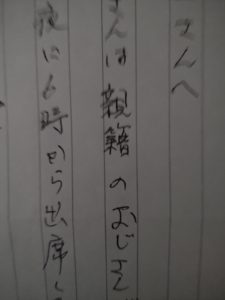 さんへ
さんは親籍のおじさん
夜に6時から出席し